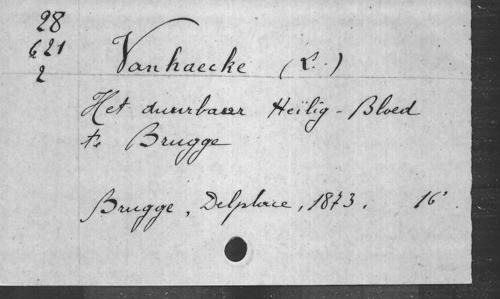 28
621
2
Vanhaecke (L.)
Het duurbaar Heilig-Bloed
te Brugge
Brugge, Delplace, 1873. 16°